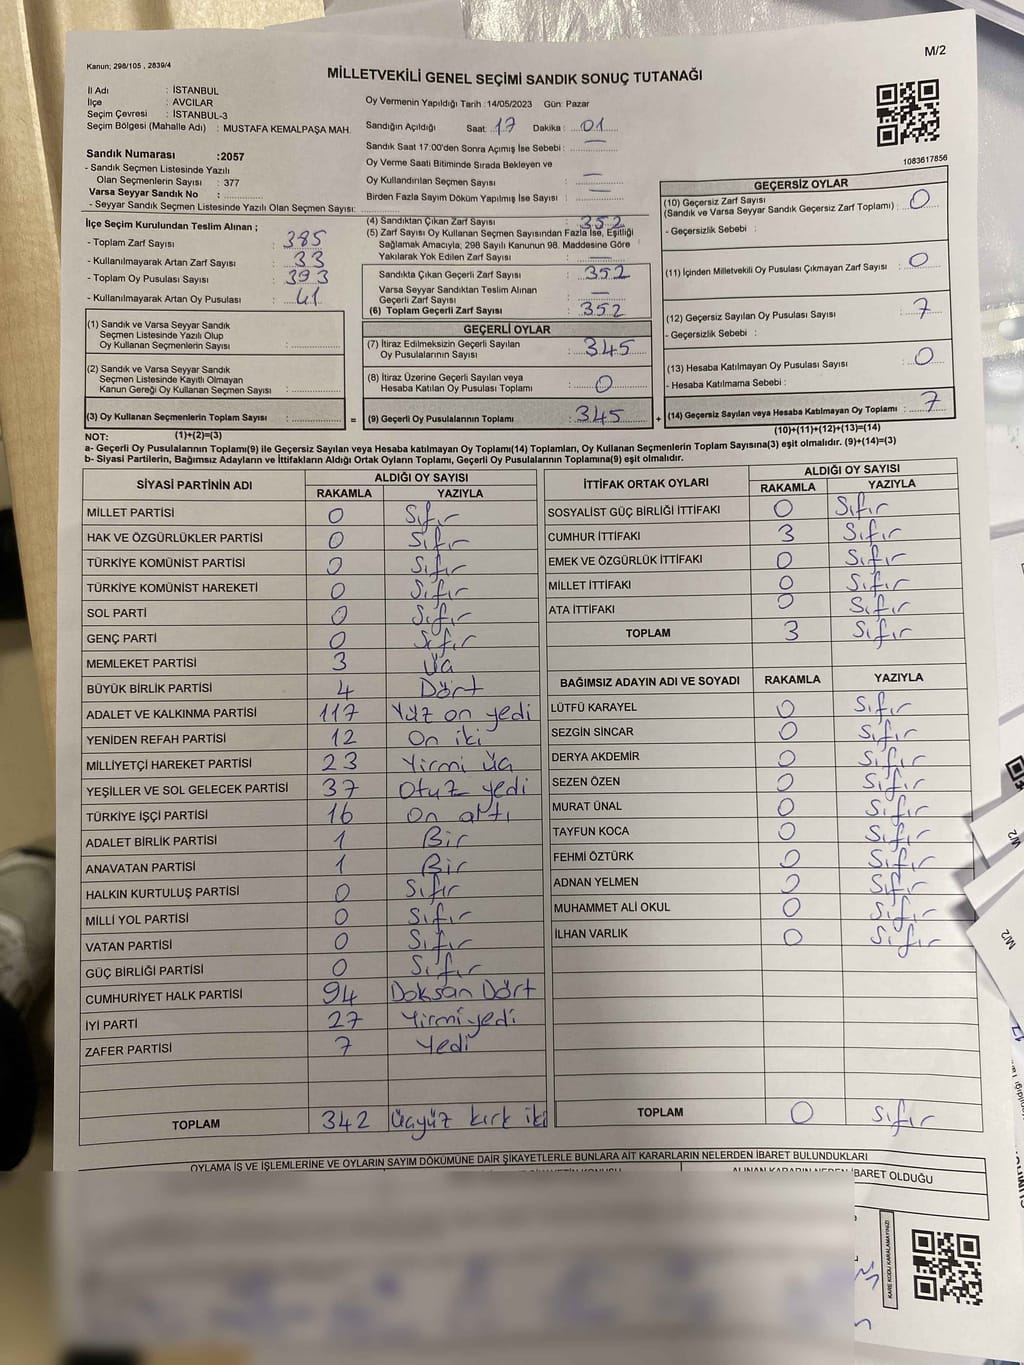 M/2
Kanun; 298/105 , 2839/4
MİLLETVEKİLİ GENEL SEÇİMİ SANDIK SONUÇ TUTANAĞI
İl Adı : İSTANBUL
İlçe : AVCILAR
Seçim Çevresi : İSTANBUL-3
Seçim Bölgesi (Mahalle Adı) : MUSTAFA KEMALPAŞA MAH.
Sandık Numarası :2057
- Sandık Seçmen Listesinde Yazılı
Olan Seçmenlerin Sayısı : 377
Varsa Seyyar Sandık No :
- Seyyar Sandık Seçmen Listesinde Yazılı Olan Seçmen Sayısı:
Oy Vermenin Yapıldığı Tarih :14/05/2023 Gün: Pazar
Sandığın Açıldığı Saat: 17 Dakika : 01
Sandık Saat 17:00'den Sonra Açımış İse Sebebi : —
Oy Verme Saati Bitiminde Sırada Bekleyen ve
Oy Kullandırılan Seçmen Sayısı : —
Birden Fazla Sayım Döküm Yapılmış İse Sayısı : —
1083617856
İlçe Seçim Kurulundan Teslim Alınan ;
- Toplam Zarf Sayısı : 385
- Kullanılmayarak Artan Zarf Sayısı : 33
- Toplam Oy Pusulası Sayısı : 393
- Kullanılmayarak Artan Oy Pusulası : 41
(1) Sandık ve Varsa Seyyar Sandık
Seçmen Listesinde Yazılı Olup
Oy Kullanan Seçmenlerin Sayısı :
(2) Sandık ve Varsa Seyyar Sandık
Seçmen Listesinde Kayıtlı Olmayan
Kanun Gereği Oy Kullanan Seçmen Sayısı :
(3) Oy Kullanan Seçmenlerin Toplam Sayısı :
(4) Sandıktan Çıkan Zarf Sayısı : 352
(5) Zarf Sayısı Oy Kullanan Seçmen Sayısından Fazla İse, Eşitliği
Sağlamak Amacıyla, 298 Sayılı Kanunun 98. Maddesine Göre
Yakılarak Yok Edilen Zarf Sayısı : —
Sandıkta Çıkan Geçerli Zarf Sayısı : 352
Varsa Seyyar Sandıktan Teslim Alınan
Geçerli Zarf Sayısı : —
(6) Toplam Geçerli Zarf Sayısı : 352
GEÇERLİ OYLAR
(7) İtiraz Edilmeksizin Geçerli Sayılan
Oy Pusulalarının Sayısı : 345
(8) İtiraz Üzerine Geçerli Sayılan veya
Hesaba Katılan Oy Pusulası Toplamı : 0
= (9) Geçerli Oy Pusulalarının Toplamı : 345 +
GEÇERSİZ OYLAR
(10) Geçersiz Zarf Sayısı
(Sandık ve Varsa Seyyar Sandık Geçersiz Zarf Toplamı) : 0
- Geçersizlik Sebebi :
(11) İçinden Milletvekili Oy Pusulası Çıkmayan Zarf Sayısı : 0
(12) Geçersiz Sayılan Oy Pusulası Sayısı : 7
- Geçersizlik Sebebi :
(13) Hesaba Katılmayan Oy Pusulası Sayısı : 0
- Hesaba Katılmama Sebebi :
(14) Geçersiz Sayılan veya Hesaba Katılmayan Oy Toplamı : 7
NOT: (1)+(2)=(3)
(10)+(11)+(12)+(13)=(14)
a- Geçerli Oy Pusulalarının Toplamı(9) ile Geçersiz Sayılan veya Hesaba katılmayan Oy Toplamı(14) Toplamları, Oy Kullanan Seçmenlerin Toplam Sayısına(3) eşit olmalıdır. (9)+(14)=(3)
b- Siyasi Partilerin, Bağımsız Adayların ve İttifakların Aldığı Ortak Oyların Toplamı, Geçerli Oy Pusulalarının Toplamına(9) eşit olmalıdır.
SİYASİ PARTİNİN ADI ALDIĞI OY SAYISI
RAKAMLA YAZIYLA
MİLLET PARTİSİ 0 Sıfır
HAK VE ÖZGÜRLÜKLER PARTİSİ 0 Sıfır
TÜRKİYE KOMÜNİST PARTİSİ 0 Sıfır
TÜRKİYE KOMÜNİST HAREKETİ 0 Sıfır
SOL PARTİ 0 Sıfır
GENÇ PARTİ 0 Sıfır
MEMLEKET PARTİSİ 3 Üç
BÜYÜK BİRLİK PARTİSİ 4 Dört
ADALET VE KALKINMA PARTİSİ 117 Yüz on yedi
YENİDEN REFAH PARTİSİ 12 On iki
MİLLİYETÇİ HAREKET PARTİSİ 23 Yirmi üç
YEŞİLLER VE SOL GELECEK PARTİSİ 37 Otuz yedi
TÜRKİYE İŞÇİ PARTİSİ 16 On altı
ADALET BİRLİK PARTİSİ 1 Bir
ANAVATAN PARTİSİ 1 Bir
HALKIN KURTULUŞ PARTİSİ 0 Sıfır
MİLLİ YOL PARTİSİ 0 Sıfır
VATAN PARTİSİ 0 Sıfır
GÜÇ BİRLİĞİ PARTİSİ 0 Sıfır
CUMHURİYET HALK PARTİSİ 94 Doksan Dört
İYİ PARTİ 27 Yirmi yedi
ZAFER PARTİSİ 7 Yedi
TOPLAM 342 Üçyüz kırk iki
İTTİFAK ORTAK OYLARI ALDIĞI OY SAYISI
RAKAMLA YAZIYLA
SOSYALİST GÜÇ BİRLİĞİ İTTİFAKI 0 Sıfır
CUMHUR İTTİFAKI 3 Sıfır
EMEK VE ÖZGÜRLÜK İTTİFAKI 0 Sıfır
MİLLET İTTİFAKI 0 Sıfır
ATA İTTİFAKI 0 Sıfır
TOPLAM 3 Sıfır
BAĞIMSIZ ADAYIN ADI VE SOYADI RAKAMLA YAZIYLA
LÜTFÜ KARAYEL 0 Sıfır
SEZGİN SİNCAR 0 Sıfır
DERYA AKDEMİR 0 Sıfır
SEZEN ÖZEN 0 Sıfır
MURAT ÜNAL 0 Sıfır
TAYFUN KOCA 0 Sıfır
FEHMİ ÖZTÜRK 0 Sıfır
ADNAN YELMEN 0 Sıfır
MUHAMMET ALİ OKUL 0 Sıfır
İLHAN VARLIK 0 Sıfır
TOPLAM 0 Sıfır
OYLAMA İŞ VE İŞLEMLERİNE VE OYLARIN SAYIM DÖKÜMÜNE DAİR ŞİKAYETLERLE BUNLARA AİT KARARLARIN NELERDEN İBARET BULUNDUKLARI
ALINAN KARARIN NEDEN İBARET OLDUĞU
KARE KODU KARALAMAYINIZ!
M/2
M/2